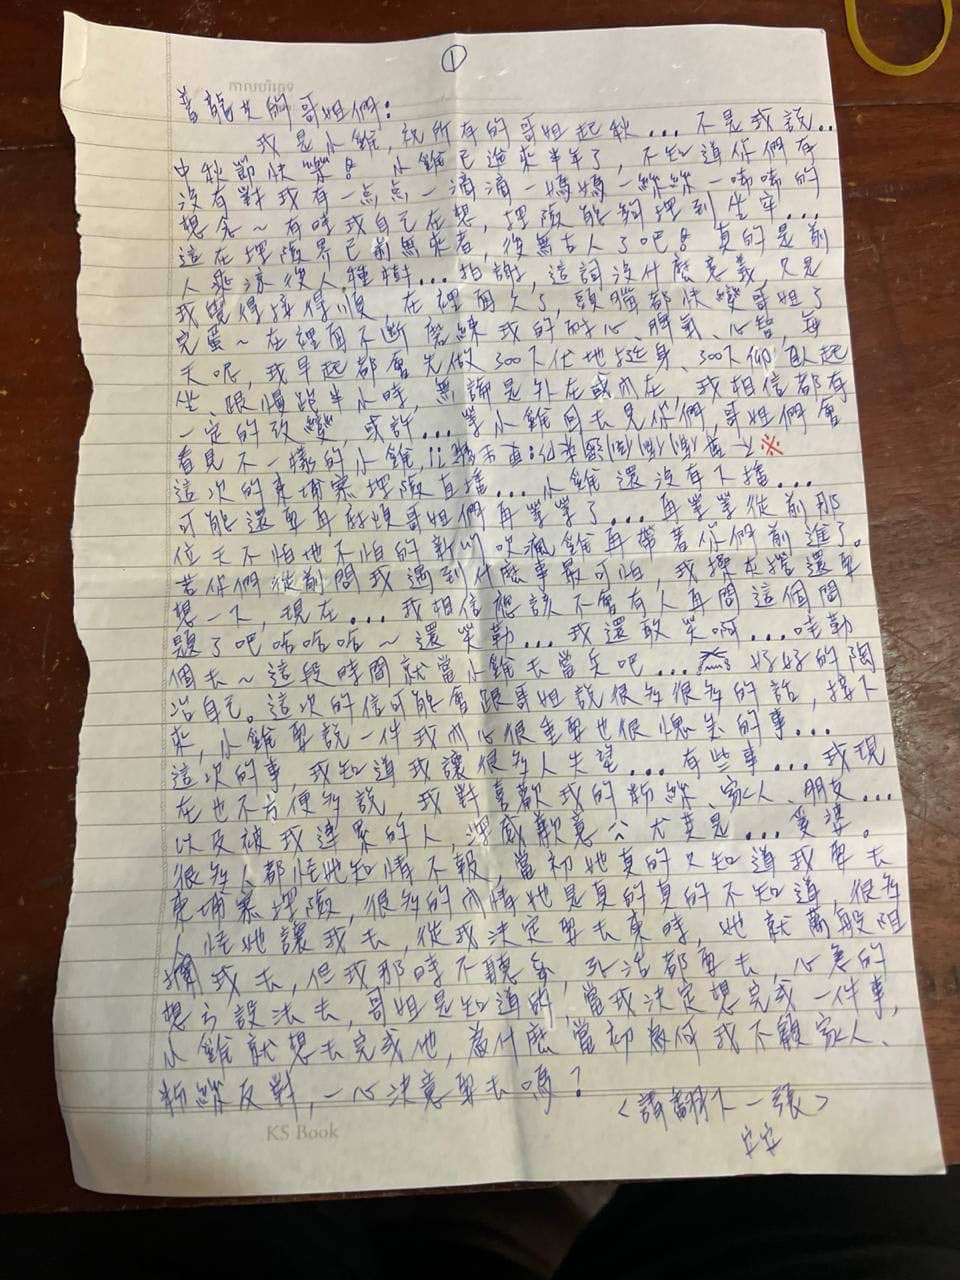 ①
កាលបរិច្ឆេទ
善龍女的哥姐們：
我是小鎧，祝所有的哥姐起秋...不是我說..
中秋節快樂！小鎧已進來半年了，不知道你們有
沒有對我有一点点一滴滴一媽媽一絲絲一嘶嘶的
想念～有時我自己在想，探險能夠探到坐牢...
這在探險界已前無來者，後無古人了吧！真的是前
人乘涼後人種樹...拍謝，這詞沒什麼意義，只是
我覺得接得順，在裡面久了，頭腦都快變哥姐了
完蛋～在裡面不斷磨練我的耐心、脾氣、心智，每
天呢，我早起都會先做300下伏地挺身、300下仰臥起
坐、跟慢跑半小時，無論是外在或內在，我相信都有
一定的改變，或許...等小鎧回去見你們，哥姐們會
看見不一樣的小鎧，
這次的柬埔寨探險直播...小鎧還沒有下播...
可能還要再麻煩哥姐們再等等了...再等等從前那
位天不怕地不怕的新竹吹瘋鎧再帶著你們前進了。
若你們從前問我遇到什麼事最可怕，我摸灰搭還要
想一下，現在...我相信應該不會有人再問這個問
題了吧哈哈哈～還笑勒...我還敢笑啊...哇勒
個去～這段時間就當小鎧去當兵吧... 好好的陶
冶自己。這次的信可能會跟哥姐說很多很多的話，接下
來，小鎧要說一件我內心很重要也很愧失的事...
這次的事，我知道我讓很多人失望...有些事...我現
在也不方便多說 我對喜歡我的粉絲、家人、朋友...
以及被我連累的人，深感歉意，尤其是...愛婆。
很多人都怪她知情不報，當初她真的只知道我要去
柬埔寨探險，很多的內情她是真的真的不知道，很多
人怪她讓我去，從我決定要去柬時，她就萬般阻
攔我去，但我那時不聽勸，死活都要去，心急的
想方設法去，哥姐是知道的，當我決定想完成一件事，
小鎧就想去完成他，為什麼當初為何我不顧家人、
粉絲反對，一心決意要去嗎？
＜請翻下一張＞
KS Book